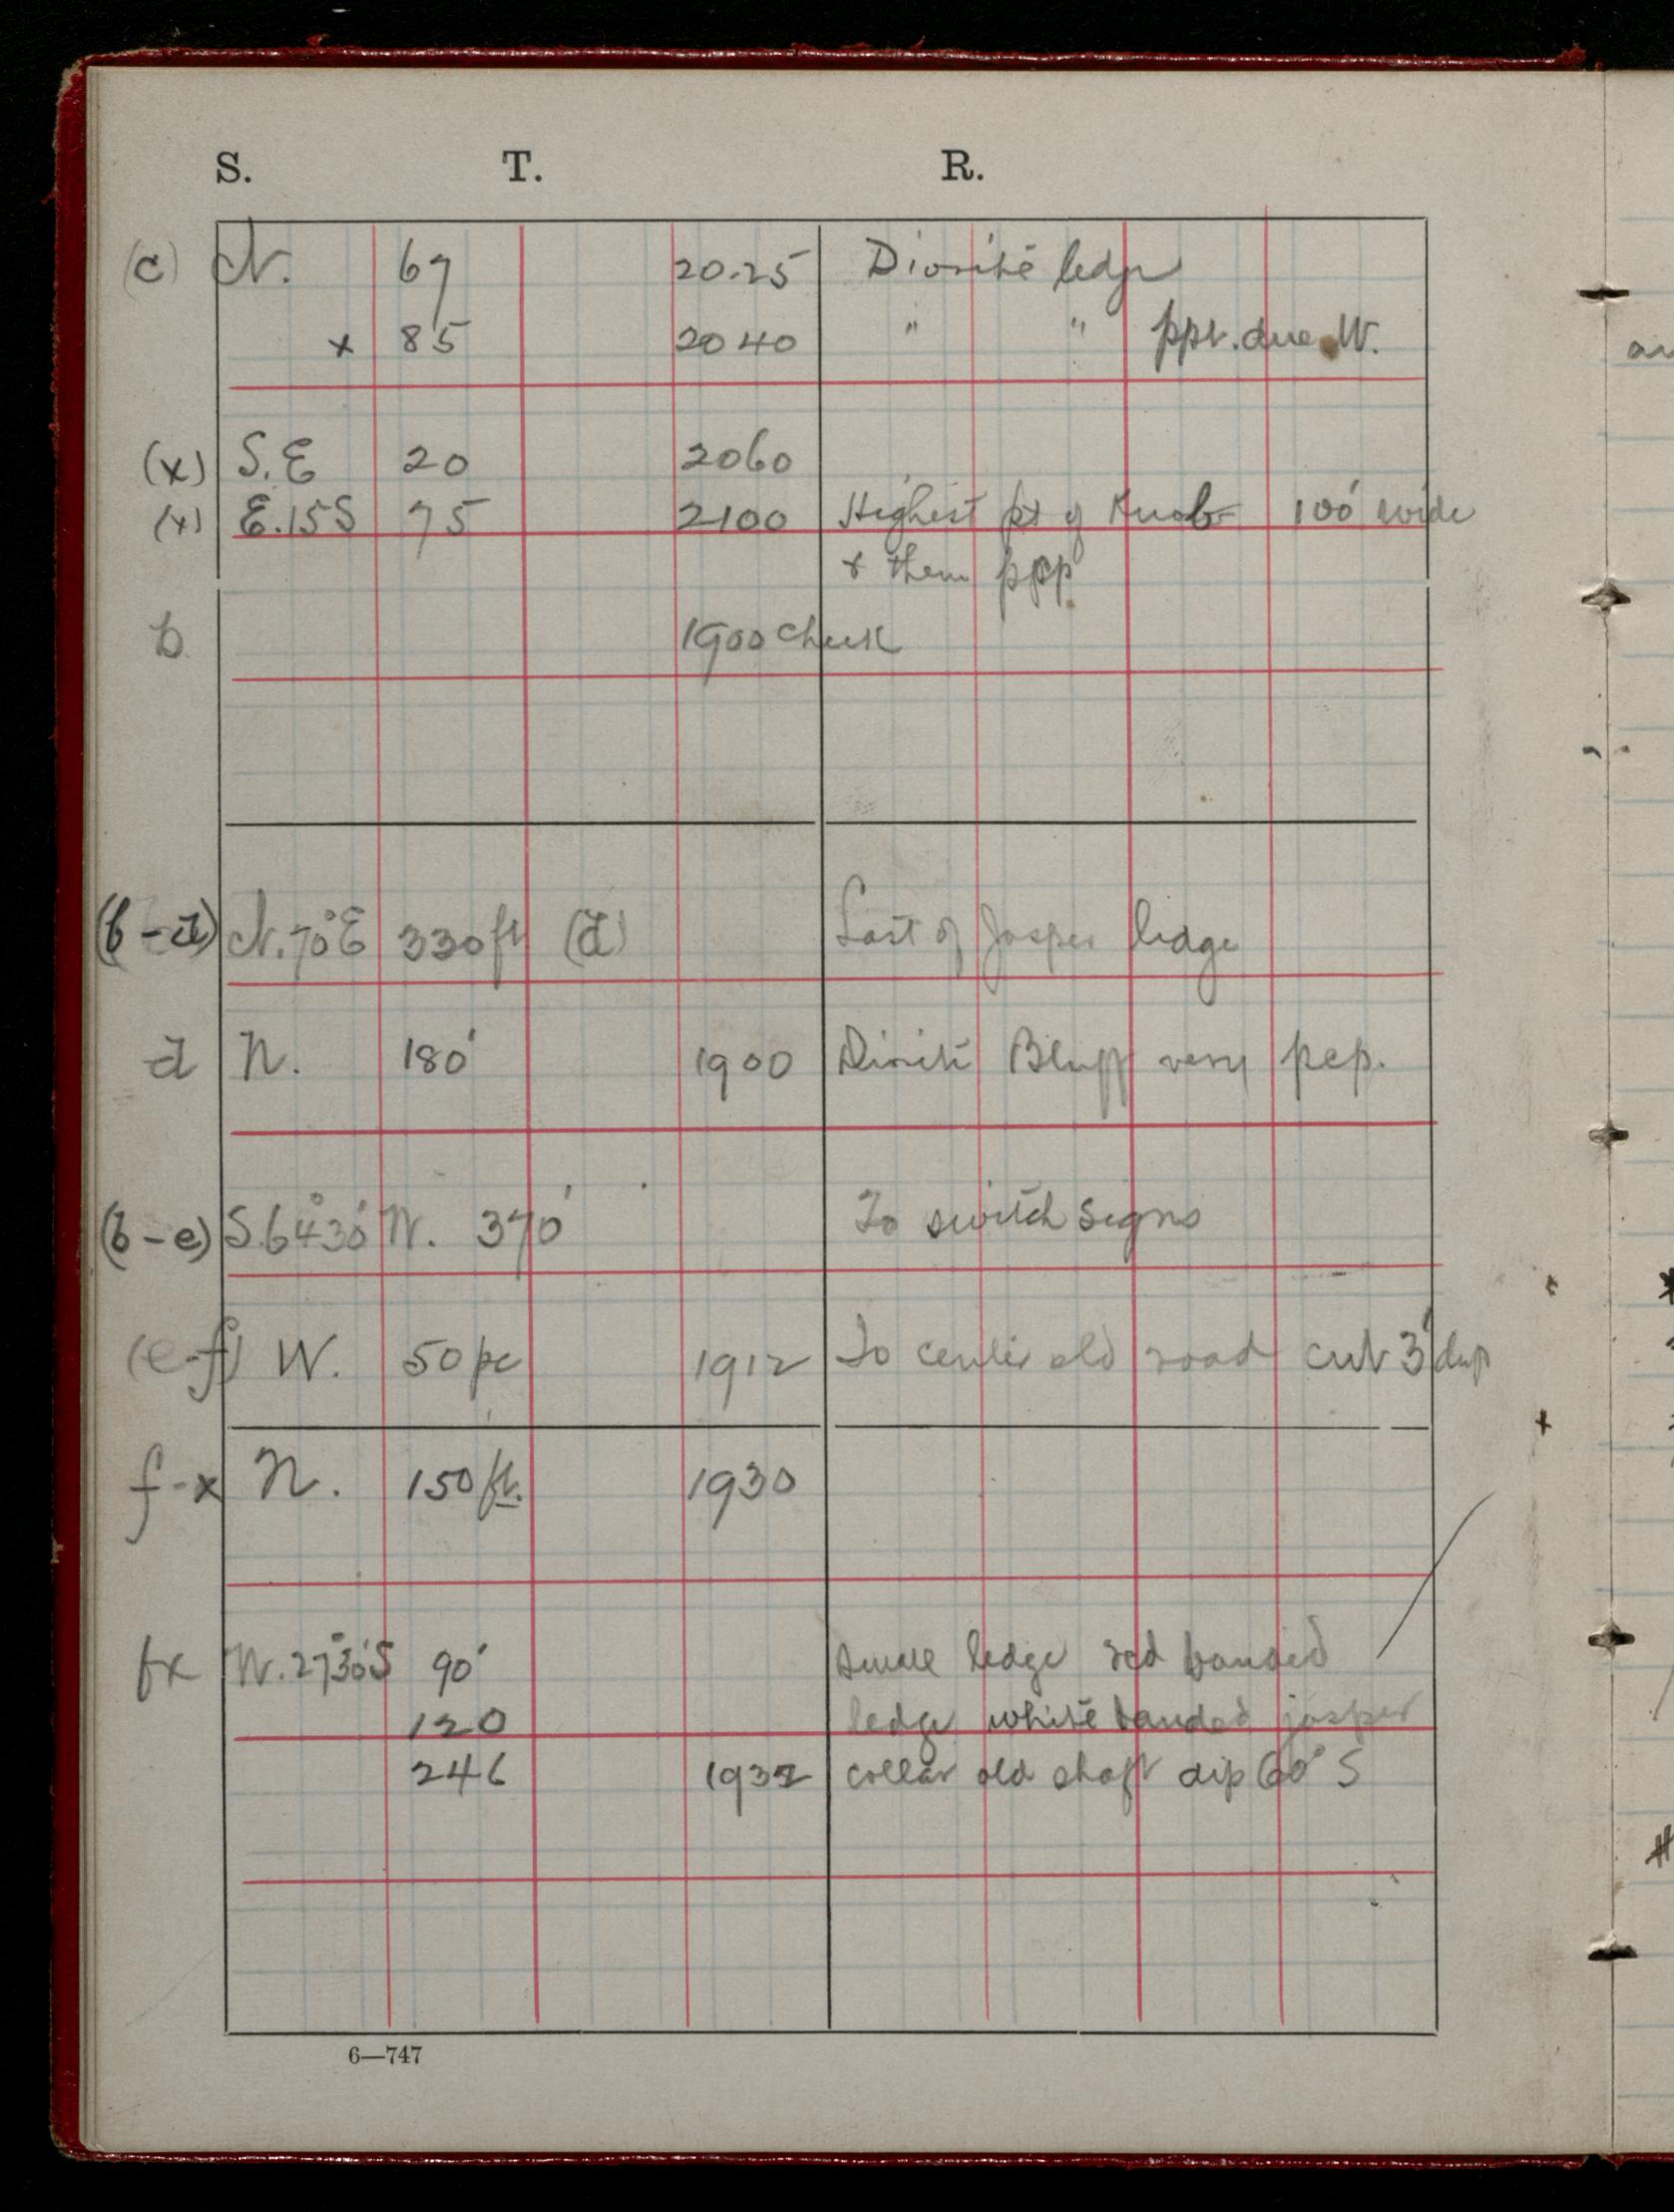 S. T. R.
(c) N. 67 20.25 Diorite ledge
x 85 2040 " " ppt. due W.
(x) S.E 20 2060
(x) E.15S 75 2100 Highest pt of Knob 100' wide
& then ppp
b 1900 check
(b-d) N.70°E 330ft (d) Last of Jasper ledge
d N. 180' 1900 Diorite Bluff very pep.
(b-e) S.64°30'W. 370' To switch signs
(e-f) W. 50 pc 1912 To center old road cut 3' deep
f-x N. 150 ft. 1930
fx W.27°30'S 90' small ledge red banded
120 ledge white banded jasper
246 1932 collar old shaft dip 60° S
6—747